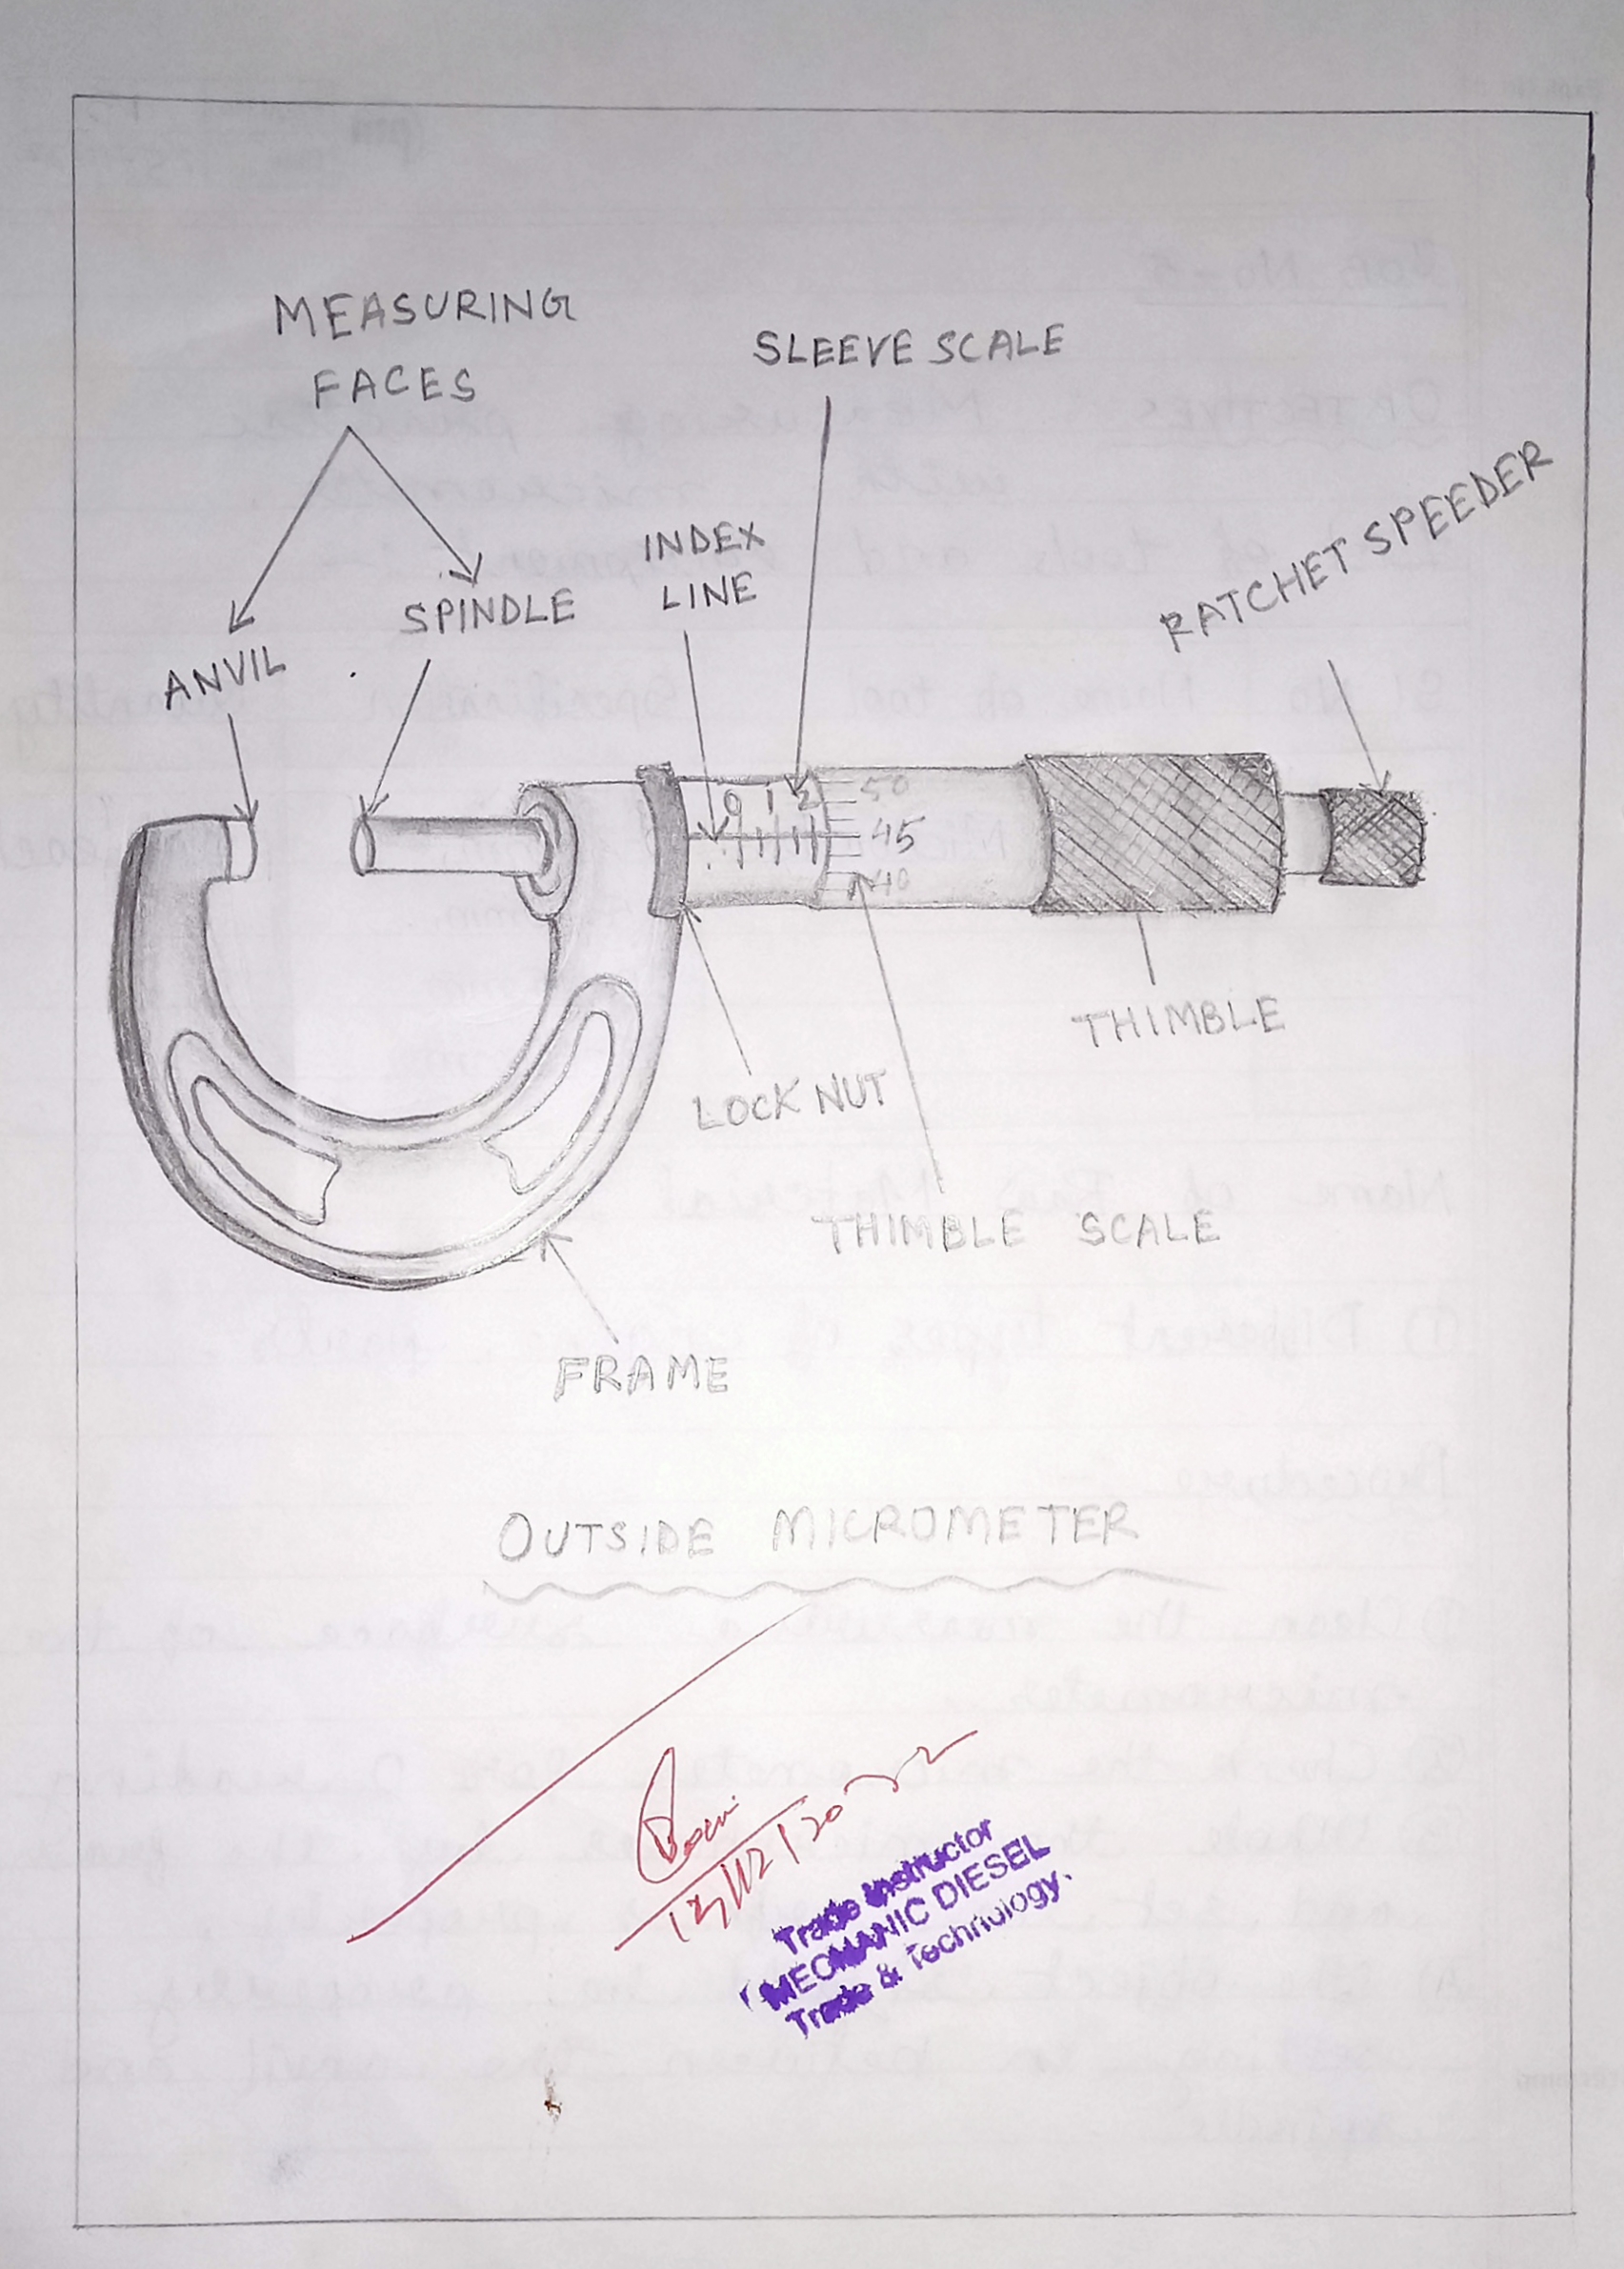 MEASURING
FACES
SLEEVE SCALE
INDEX
LINE
RATCHET SPEEDER
SPINDLE
ANVIL
0 1 2
50
45
40
THIMBLE
LOCK NUT
THIMBLE SCALE
FRAME
OUTSIDE MICROMETER
Trade Instructor
MECHANIC DIESEL
Trade & Technology.